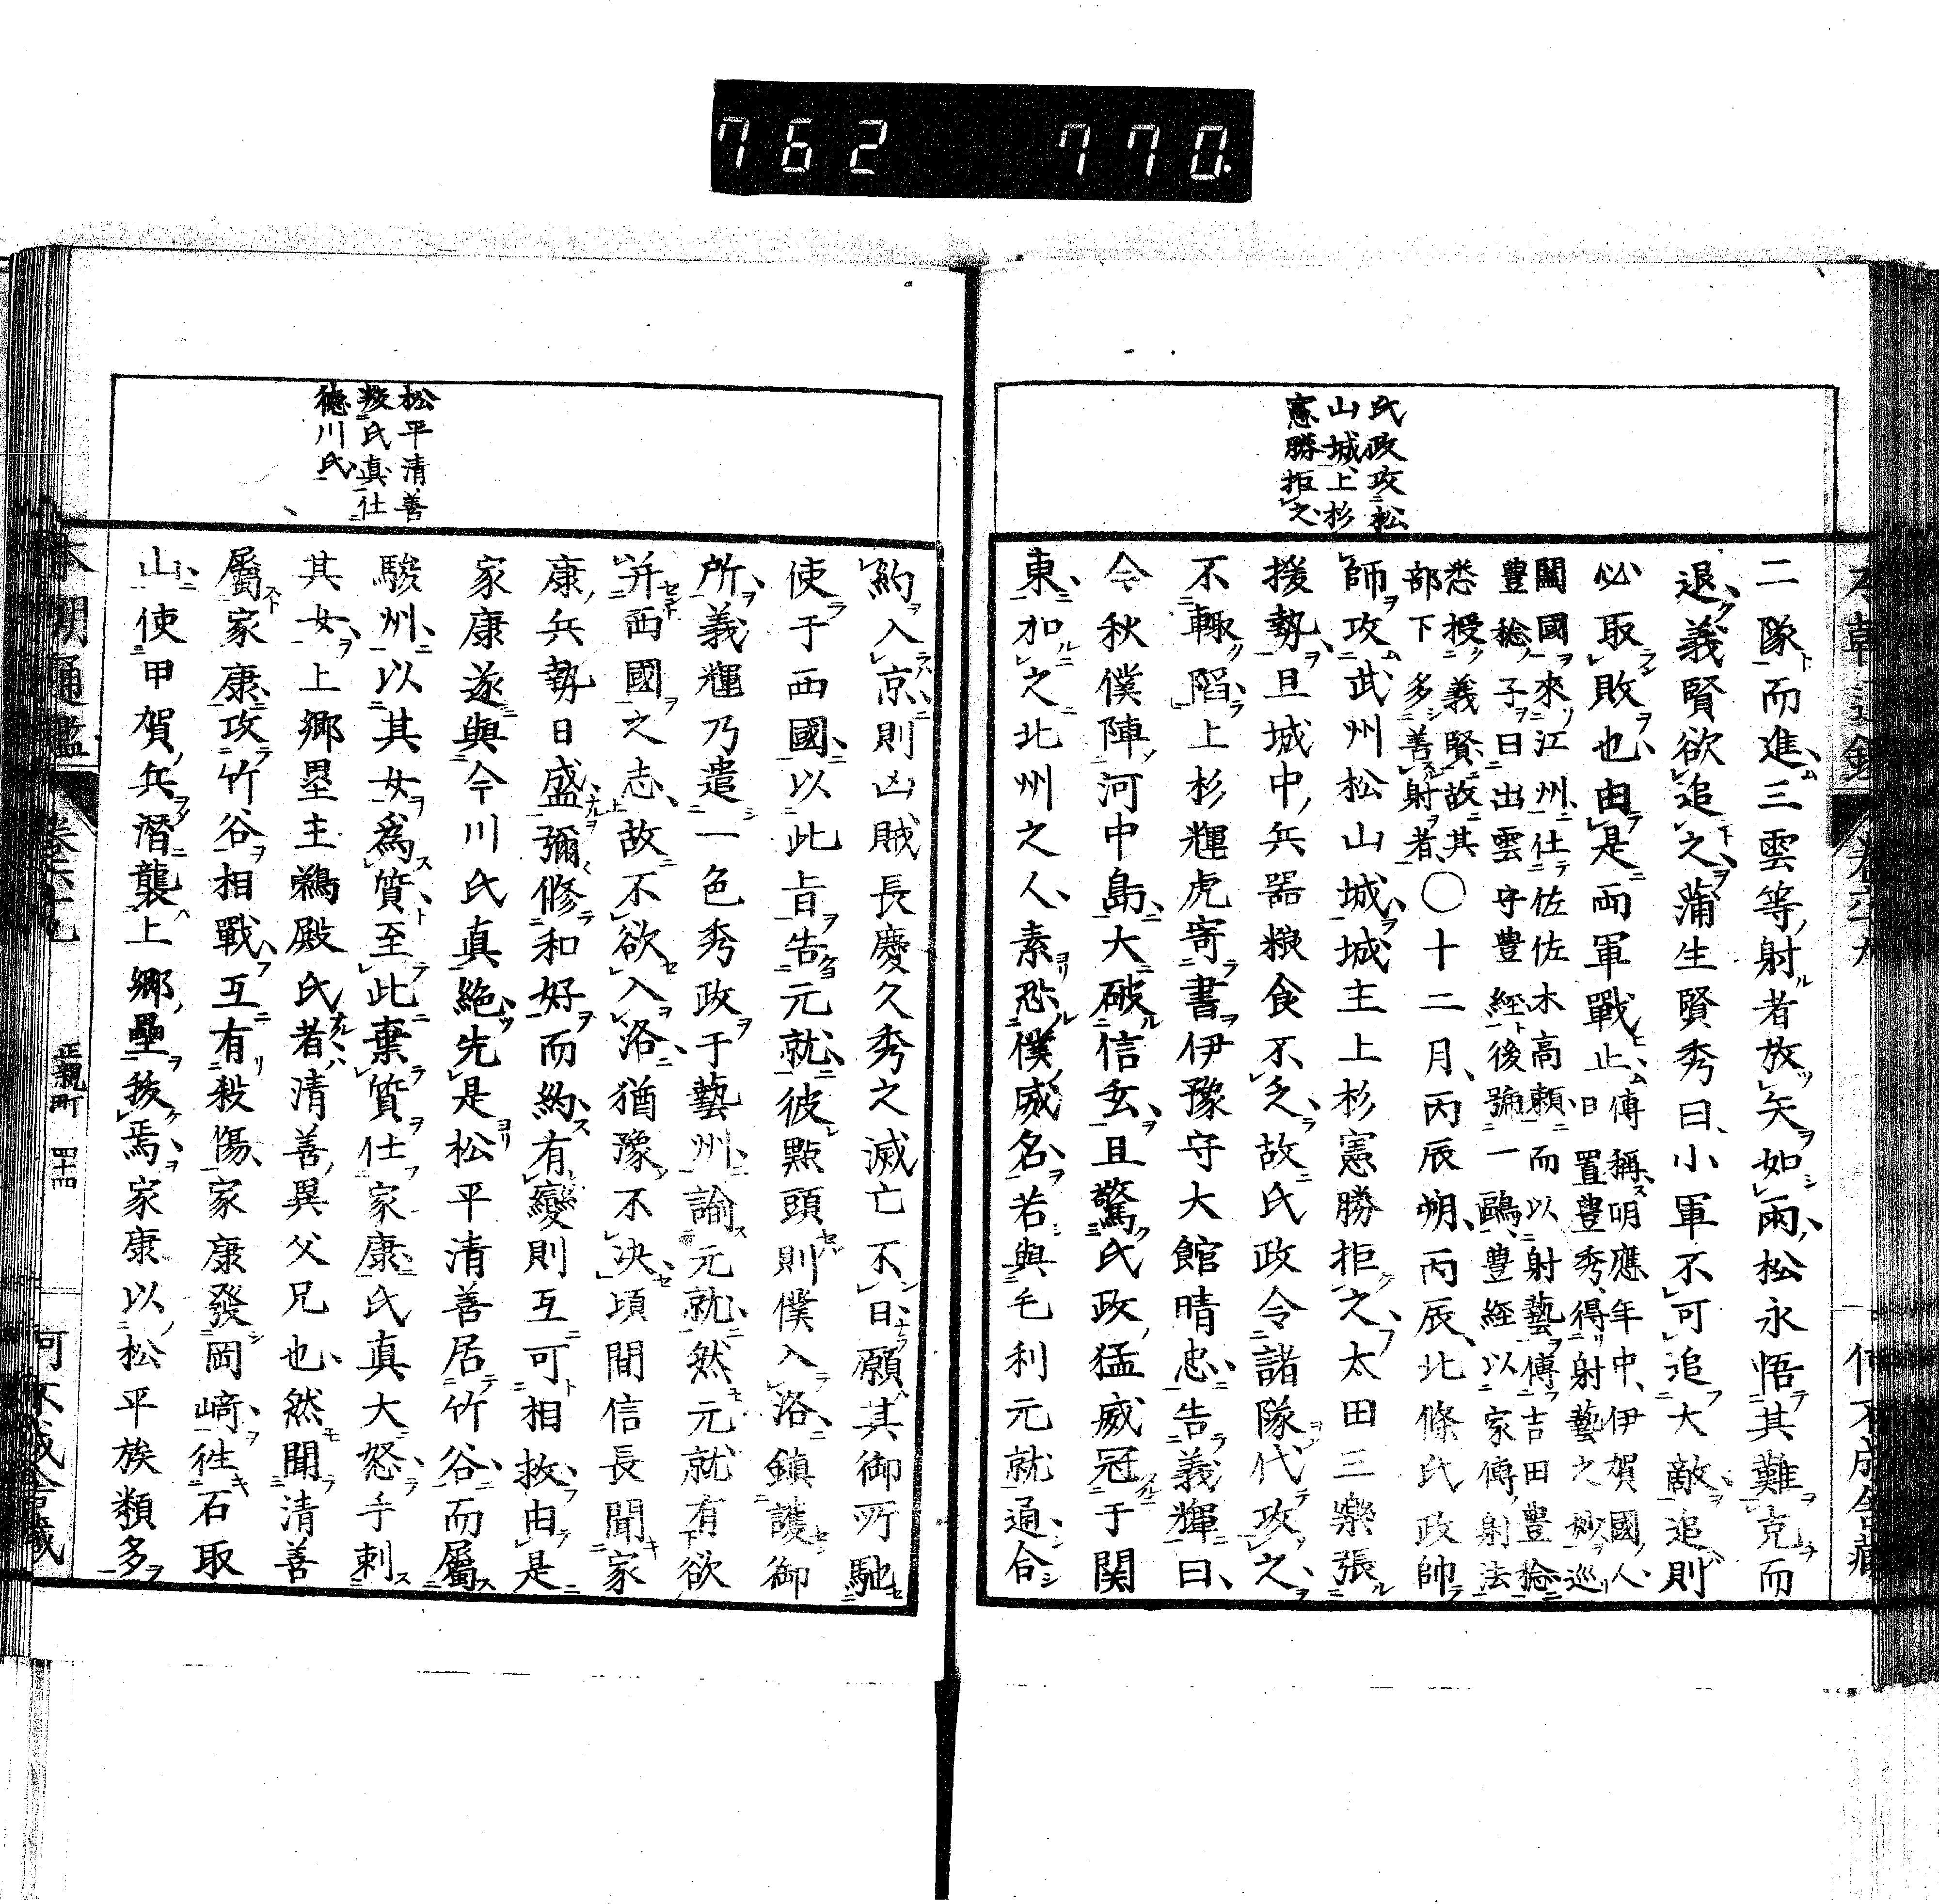 762 770.
氏政攻松
山城上杉
憲勝拒之
二隊而進三雲等射者放矢如雨松永悟其難克而
退義賢欲追之蒲生賢秀曰小軍不可追大敵追則
必取敗也由是両軍戰止傳稱明應年中伊賀國人
日置豊秀得射藝之妙巡
關國來江州仕佐佐木高頼而以射藝傳吉田豊稔
豊稔子曰出雲守豊經後號一鷗豊經以家傳射法
悉授義賢故其
部下多善射者○十二月丙辰朔丙辰北條氏政帥
師攻武州松山城城主上杉憲勝拒之太田三樂張
援勢且城中兵器粮食不乏故氏政令諸隊代攻之
不輙陷上杉輝虎寄書伊豫守大館晴忠告義輝曰
今秋僕陣河中島大破信玄且驚氏政猛威冠于関
東加之北州之人素恐僕威名若與毛利元就通合
松平清善
叛氏真仕
徳川氏
約入京則凶賊長慶久秀之滅亡不日願其御所馳
使于西國以此旨告元就彼點頭則僕入洛鎮護御
所義輝乃遣一色秀政于藝州諭元就然元就有欲
并西國之志故不欲入洛猶豫不決頃間信長聞家
康兵勢日盛彌修和好而約有變則互可相救由是
家康遂與今川氏真絶先是松平清善居竹谷而屬
駿州以其女爲質至此棄質仕家康氏真大怒手刺
其女上郷塁主鵜殿氏者清善異父兄也然聞清善
屬家康攻竹谷相戰互有殺傷家康發岡﨑徃石取
山使甲賀兵潜襲上郷壘拔焉家康以松平族類多
本朝通鑑 卷六十九 正親町 四十四